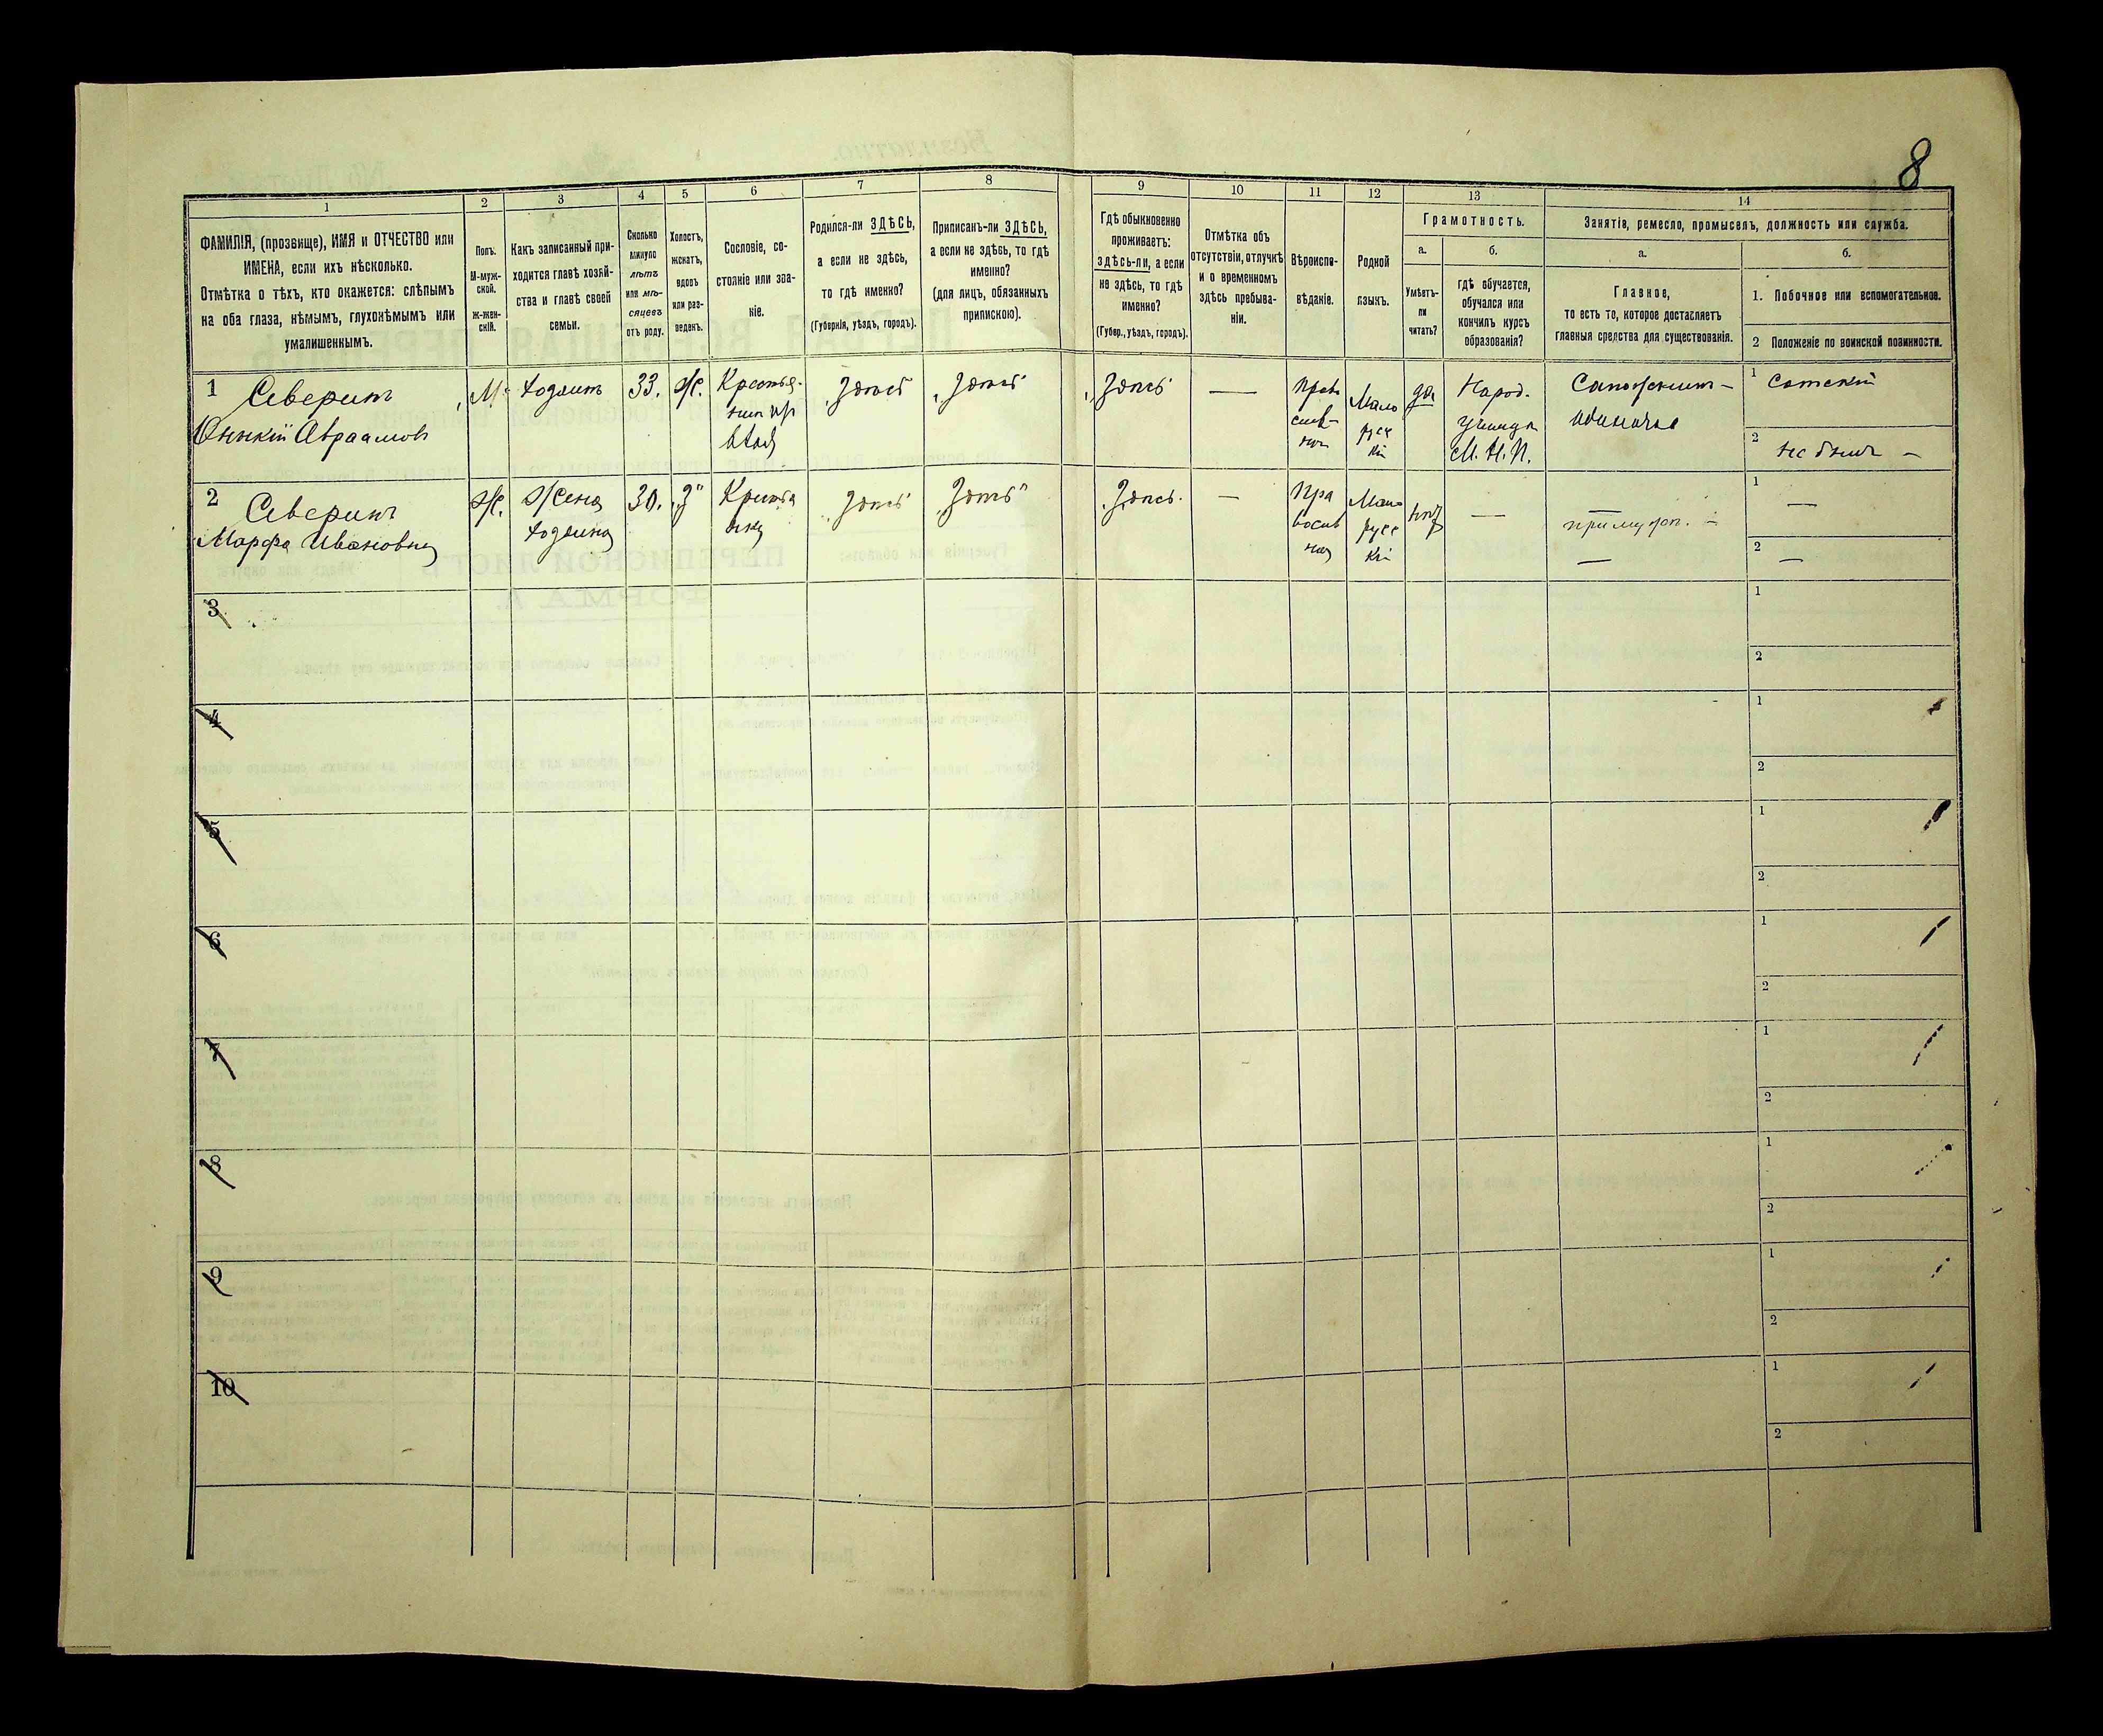 8
1
2
3
4
5
6
7
8
9
10
11
12
13
14
ФАМИЛІЯ, (прозвище), ИМЯ и ОТЧЕСТВО или
ИМЕНА, если ихъ нѣсколько.
Отмѣтка о тѣхъ, кто окажется: слѣпымъ
на оба глаза, нѣмымъ, глухонѣмымъ или
умалишеннымъ.
Полъ.
М-муж-
ской.
ж-жен-
скій.
Какъ записанный при-
ходится главѣ хозяй-
ства и главѣ своей
семьи.
Сколько
минуло
лѣтъ
или мѣ-
сяцевъ
отъ роду.
Холостъ,
женатъ,
вдовъ
или раз-
веденъ.
Сословіе, со-
стояніе или зва-
ніе.
Родился-ли ЗДѢСЬ,
а если не здѣсь,
то гдѣ именно?
(Губернія, уѣздъ, городъ).
Приписанъ-ли ЗДѢСЬ,
а если не здѣсь, то гдѣ
именно?
(для лицъ, обязанныхъ
припискою).
Гдѣ обыкновенно
проживаетъ:
здѣсь-ли, а если
не здѣсь, то гдѣ
именно?
(Губер., уѣздъ, городъ).
Отмѣтка объ
отсутствіи, отлучкѣ
и о временномъ
здѣсь пребыва-
ніи.
Вѣроиспо-
вѣданіе.
Родной
языкъ.
Грамотность.
а.
Умѣетъ-
ли
читать?
б.
гдѣ обучается,
обучался или
кончилъ курсъ
образованія?
Занятіе, ремесло, промыселъ, должность или служба.
а.
Главное,
то есть то, которое доставляетъ
главныя средства для существованія.
б.
1. Побочное или вспомогательное.
2 Положеніе по воинской повинности.
1 Северинъ
Авраамовъ
М.
Хозяинъ
33.
Ж.
Крестья-
Здѣсь
Здѣсь
Здѣсь
—
Прав
слав-
Мало
русс
кій
да
Народ.
училищ
М. Н. П.
1 Сотскій
2 не былъ —
2 Северинъ
Марфа Ивановна
Ж.
Жена
Хозяина
30.
З
Крестья
нка
Здѣсь
Здѣсь
Здѣсь.
—
Пра
восла
ная
Мало
русс
кій
нѣтъ
—
при муж. —
—
1 —
2 —
3
1
2
4
1
2
5
1
2
6
1
2
7
1
2
8
1
2
9
1
2
10
1
2